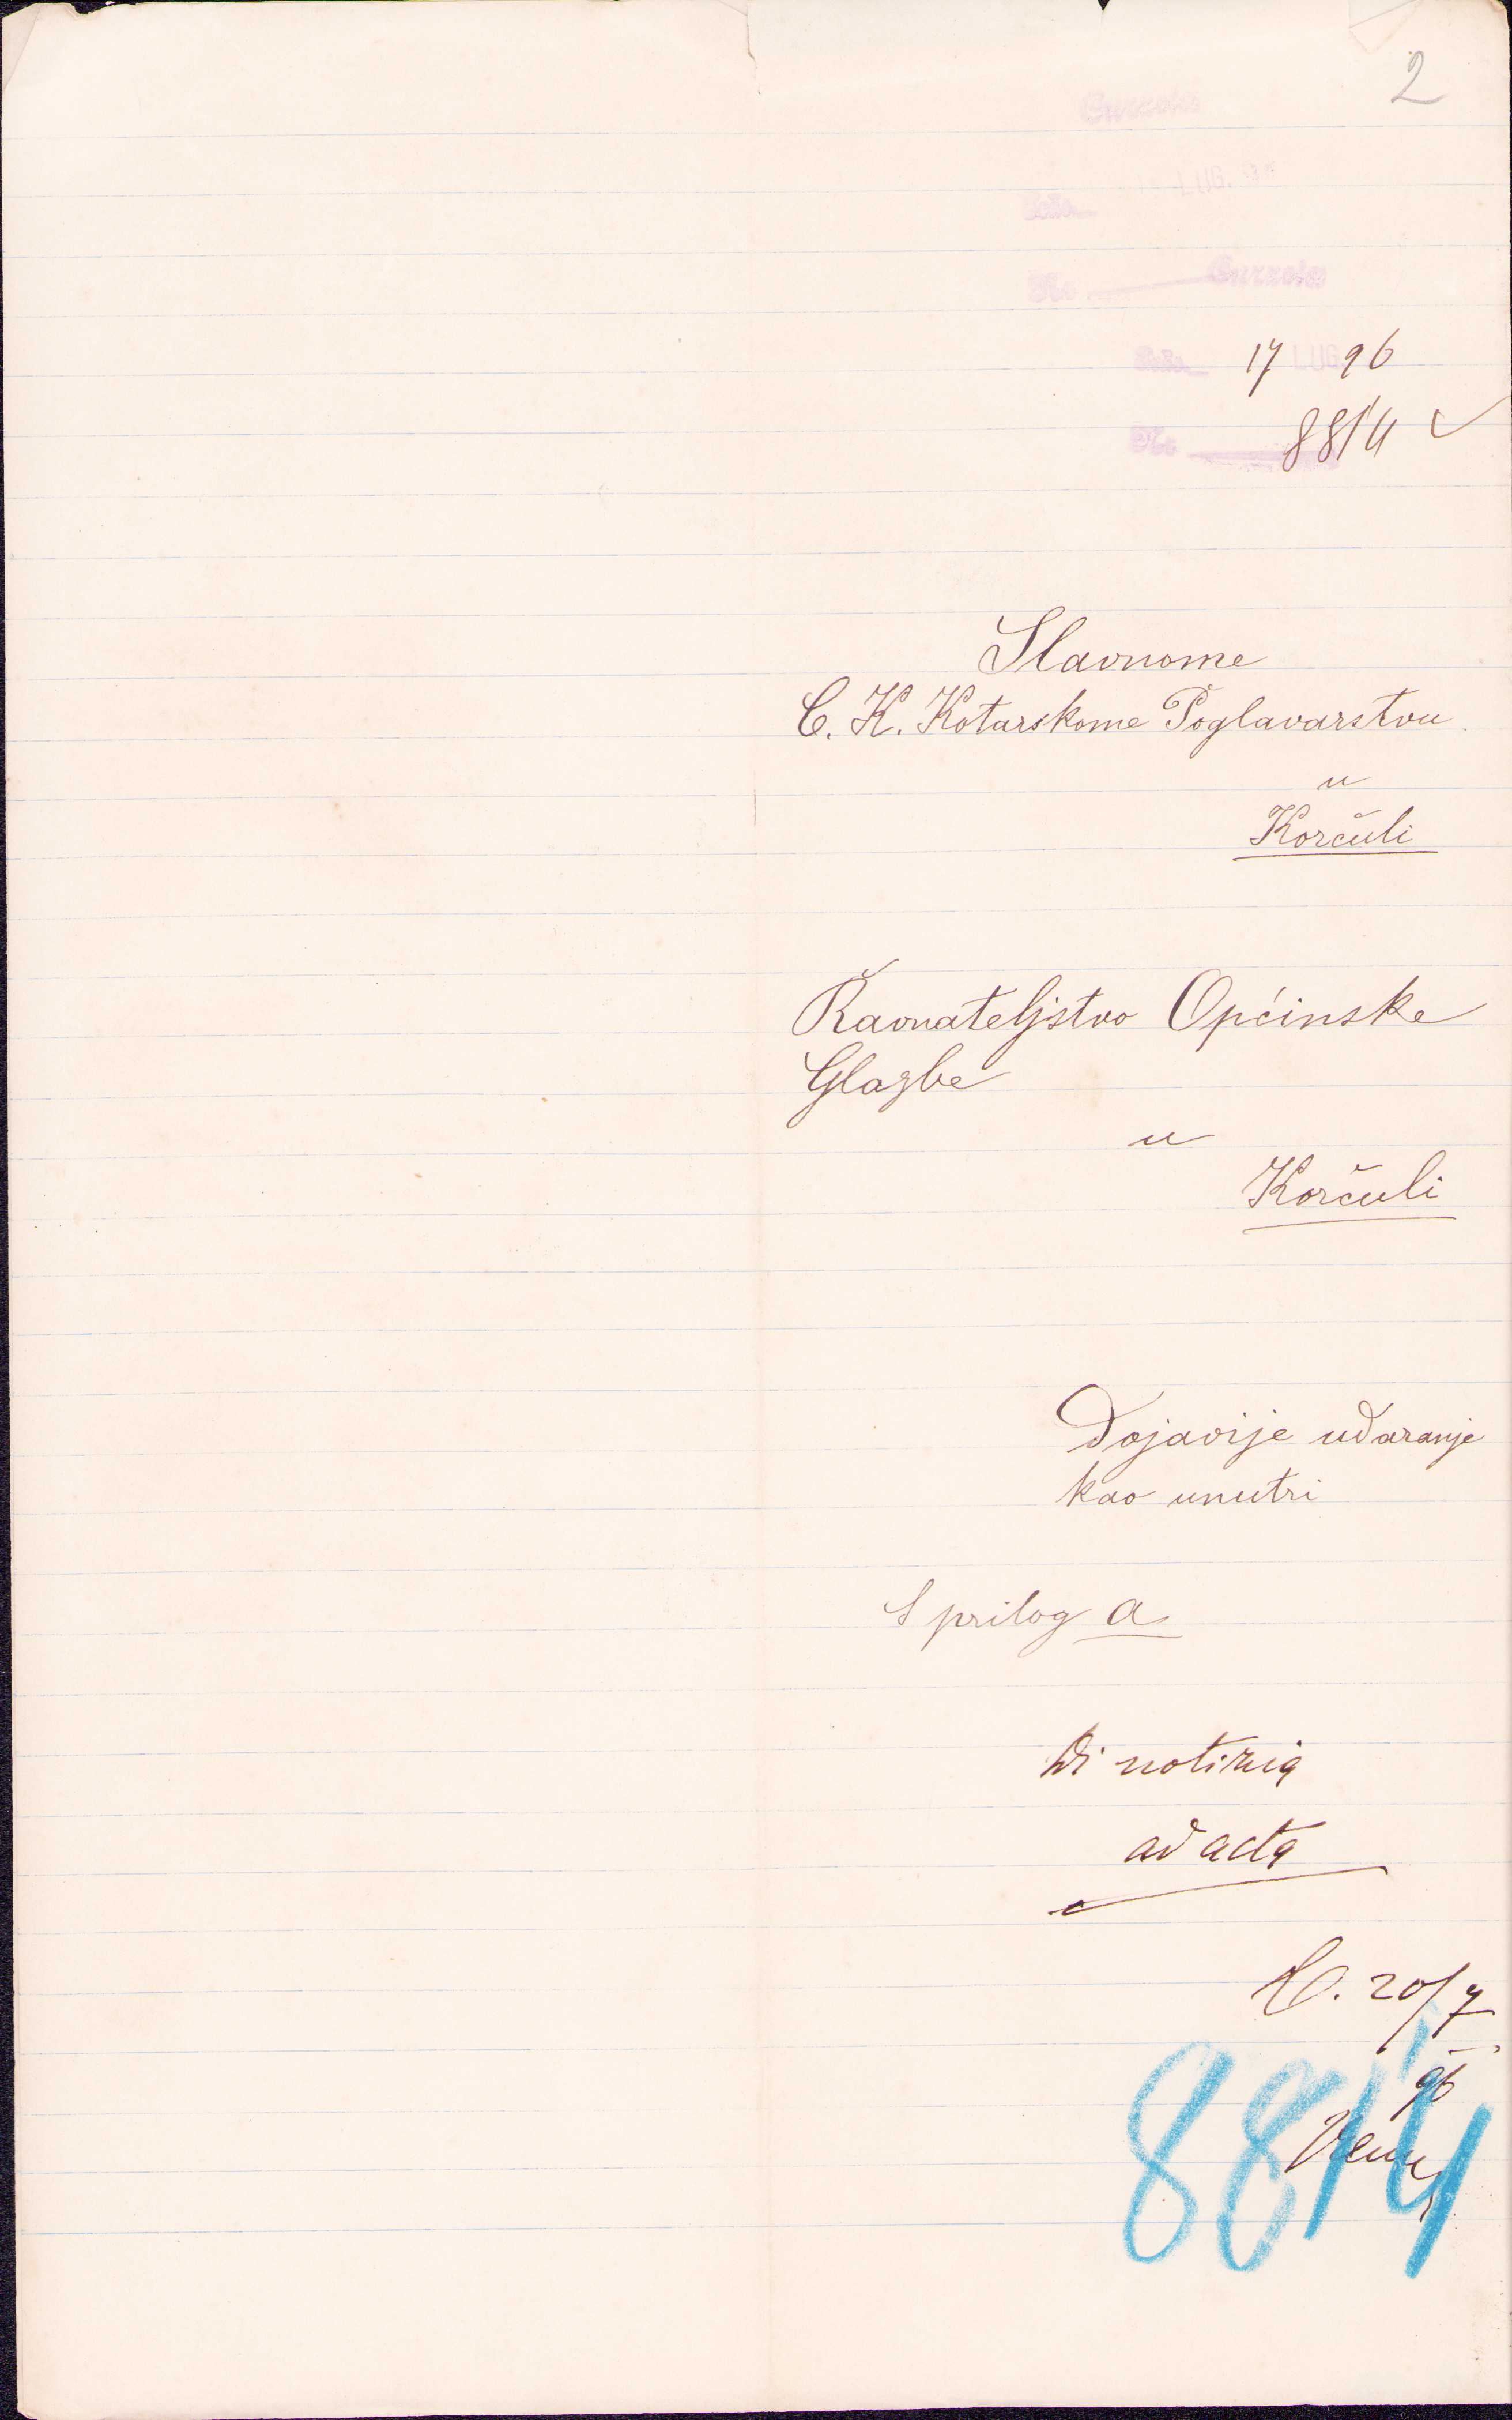 2
Curzola
LUG. 9
Curzola
No
17 LUG 96
No 8814
Slavnome
C. K. Kotarskome Poglavarstvu
u
Korčuli
Ravnateljstvo Općinske
Glazbe
u
Korčuli
Dojavije udaranje
kao unutri
S prilog a
Di notizia
ad acta
C. 20/7
96
8814